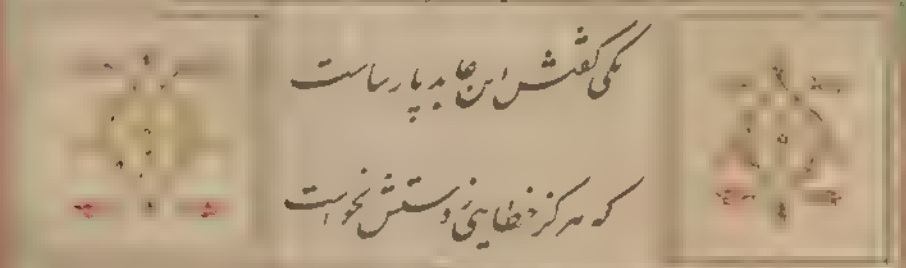 یکی گفتش این عابد پارساست
که هرگز خطایی ز دستش نخواست